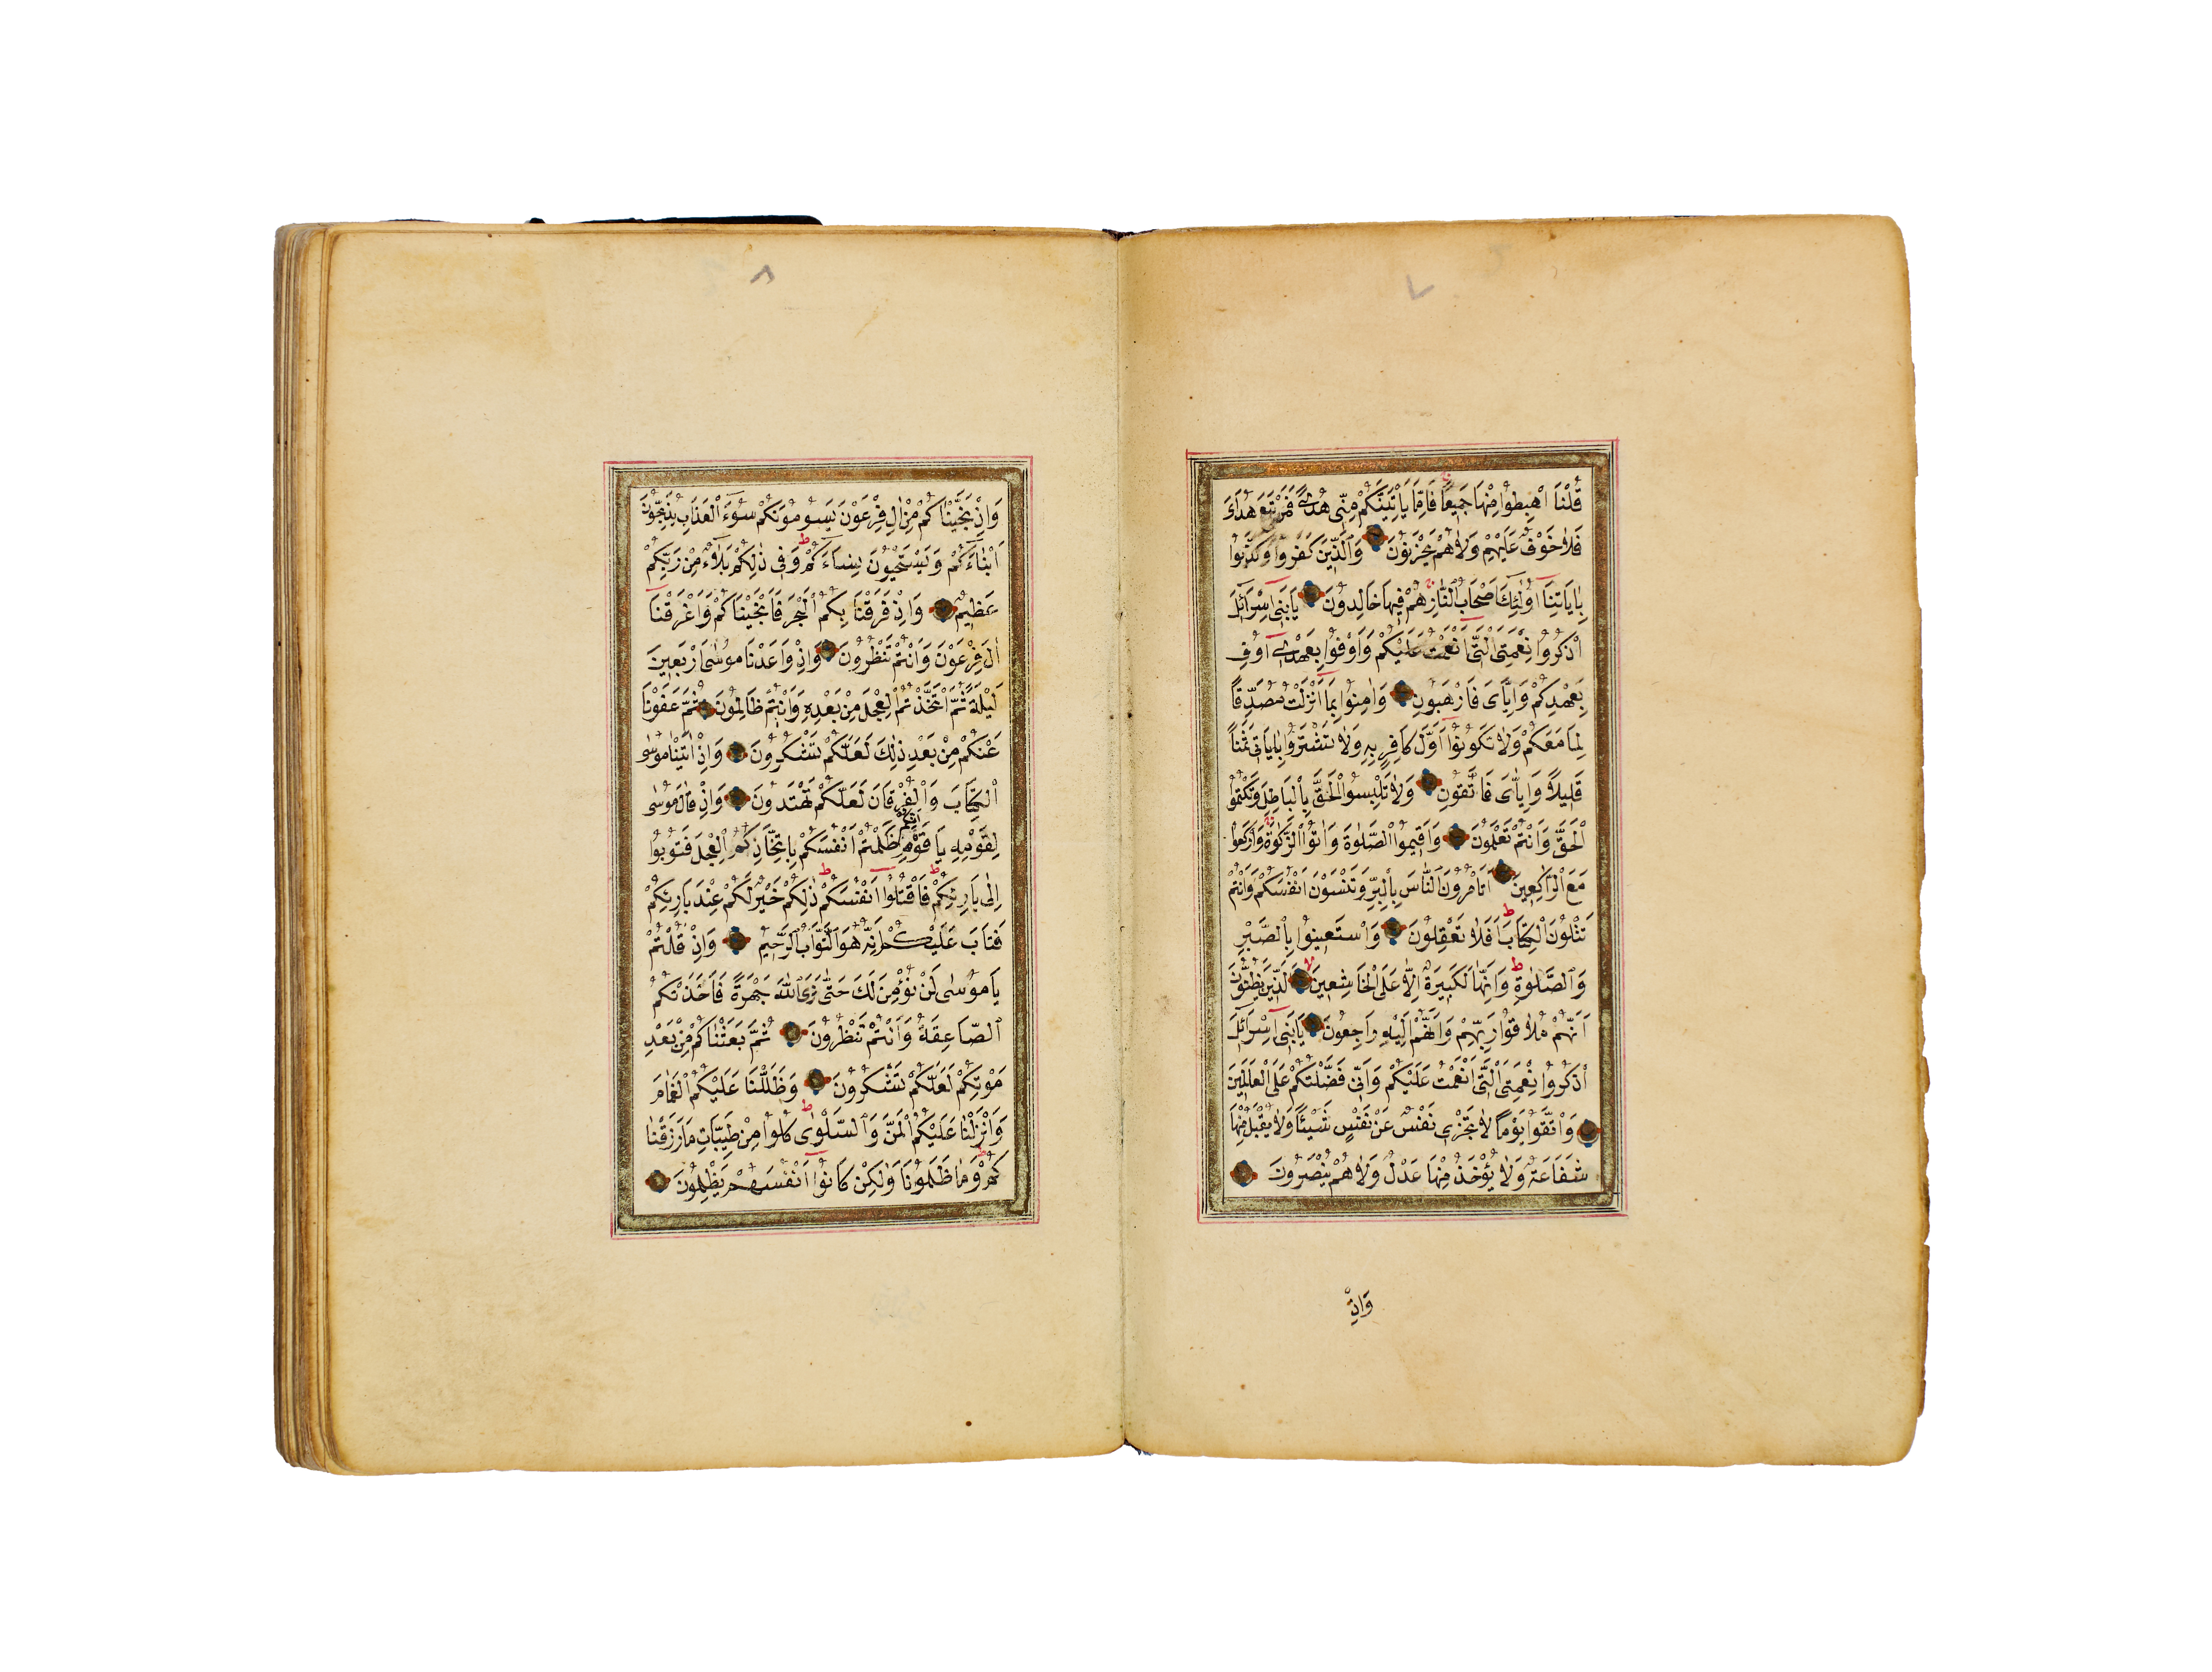 ٧
قُلْنَا اهْبِطُوا مِنْهَا جَمِيعًا فَاِمَّا يَأْتِيَنَّكُمْ مِنِّى هُدًى فَمَنْ تَبِعَ هُدَاىَ
فَلَا خَوْفٌ عَلَيْهِمْ وَلَا هُمْ يَحْزَنُونَ وَالَّذِينَ كَفَرُوا وَكَذَّبُوا
بِاٰيَاتِنَا اُولٰئِكَ اَصْحَابُ النَّارِ هُمْ فِيهَا خَالِدُونَ يَا بَنِى اِسْرَآئِلَ
اذْكُرُوا نِعْمَتِىَ الَّتِى اَنْعَمْتُ عَلَيْكُمْ وَاَوْفُوا بِعَهْدِى اُوفِ
بِعَهْدِكُمْ وَاِيَّاىَ فَارْهَبُونِ وَاٰمِنُوا بِمَا اَنْزَلْتُ مُصَدِّقًا
لِمَا مَعَكُمْ وَلَا تَكُونُوا اَوَّلَ كَافِرٍ بِهِ وَلَا تَشْتَرُوا بِاٰيَاتِى ثَمَنًا
قَلِيلًا وَاِيَّاىَ فَاتَّقُونِ وَلَا تَلْبِسُوا الْحَقَّ بِالْبَاطِلِ وَتَكْتُمُوا
الْحَقَّ وَاَنْتُمْ تَعْلَمُونَ وَاَقِيمُوا الصَّلٰوةَ وَاٰتُوا الزَّكٰوةَ وَارْكَعُوا
مَعَ الرَّاكِعِينَ اَتَأْمُرُونَ النَّاسَ بِالْبِرِّ وَتَنْسَوْنَ اَنْفُسَكُمْ وَاَنْتُمْ
تَتْلُونَ الْكِتَابَ اَفَلَا تَعْقِلُونَ وَاسْتَعِينُوا بِالصَّبْرِ
وَالصَّلٰوةِ وَاِنَّهَا لَكَبِيرَةٌ اِلَّا عَلَى الْخَاشِعِينَ الَّذِينَ يَظُنُّونَ
اَنَّهُمْ مُلَاقُوا رَبِّهِمْ وَاَنَّهُمْ اِلَيْهِ رَاجِعُونَ يَا بَنِى اِسْرَآئِلَ
اذْكُرُوا نِعْمَتِىَ الَّتِى اَنْعَمْتُ عَلَيْكُمْ وَاَنِّى فَضَّلْتُكُمْ عَلَى الْعَالَمِينَ
وَاتَّقُوا يَوْمًا لَا تَجْزِى نَفْسٌ عَنْ نَفْسٍ شَيْئًا وَلَا يُقْبَلُ مِنْهَا
شَفَاعَةٌ وَلَا يُؤْخَذُ مِنْهَا عَدْلٌ وَلَا هُمْ يُنْصَرُونَ
وَاِذْ
٨
وَاِذْ نَجَّيْنَاكُمْ مِنْ اٰلِ فِرْعَوْنَ يَسُومُونَكُمْ سُوٓءَ الْعَذَابِ يُذَبِّحُونَ
اَبْنَآءَكُمْ وَيَسْتَحْيُونَ نِسَآءَكُمْ وَفِى ذٰلِكُمْ بَلَآءٌ مِنْ رَبِّكُمْ
عَظِيمٌ وَاِذْ فَرَقْنَا بِكُمُ الْبَحْرَ فَاَنْجَيْنَاكُمْ وَاَغْرَقْنَا
اٰلَ فِرْعَوْنَ وَاَنْتُمْ تَنْظُرُونَ وَاِذْ وَاعَدْنَا مُوسٰى اَرْبَعِينَ
لَيْلَةً ثُمَّ اتَّخَذْتُمُ الْعِجْلَ مِنْ بَعْدِهِ وَاَنْتُمْ ظَالِمُونَ ثُمَّ عَفَوْنَا
عَنْكُمْ مِنْ بَعْدِ ذٰلِكَ لَعَلَّكُمْ تَشْكُرُونَ وَاِذْ اٰتَيْنَا مُوسٰى
الْكِتَابَ وَالْفُرْقَانَ لَعَلَّكُمْ تَهْتَدُونَ وَاِذْ قَالَ مُوسٰى
لِقَوْمِهِ يَا قَوْمِ اِنَّكُمْ ظَلَمْتُمْ اَنْفُسَكُمْ بِاتِّخَاذِكُمُ الْعِجْلَ فَتُوبُوا
اِلٰى بَارِئِكُمْ فَاقْتُلُوا اَنْفُسَكُمْ ذٰلِكُمْ خَيْرٌ لَكُمْ عِنْدَ بَارِئِكُمْ
فَتَابَ عَلَيْكُمْ اِنَّهُ هُوَ التَّوَّابُ الرَّحِيمُ وَاِذْ قُلْتُمْ
يَا مُوسٰى لَنْ نُؤْمِنَ لَكَ حَتّٰى نَرَى اللّٰهَ جَهْرَةً فَاَخَذَتْكُمُ
الصَّاعِقَةُ وَاَنْتُمْ تَنْظُرُونَ ثُمَّ بَعَثْنَاكُمْ مِنْ بَعْدِ
مَوْتِكُمْ لَعَلَّكُمْ تَشْكُرُونَ وَظَلَّلْنَا عَلَيْكُمُ الْغَمَامَ
وَاَنْزَلْنَا عَلَيْكُمُ الْمَنَّ وَالسَّلْوٰى كُلُوا مِنْ طَيِّبَاتِ مَا رَزَقْنَا
كُمْ وَمَا ظَلَمُونَا وَلٰكِنْ كَانُوا اَنْفُسَهُمْ يَظْلِمُونَ